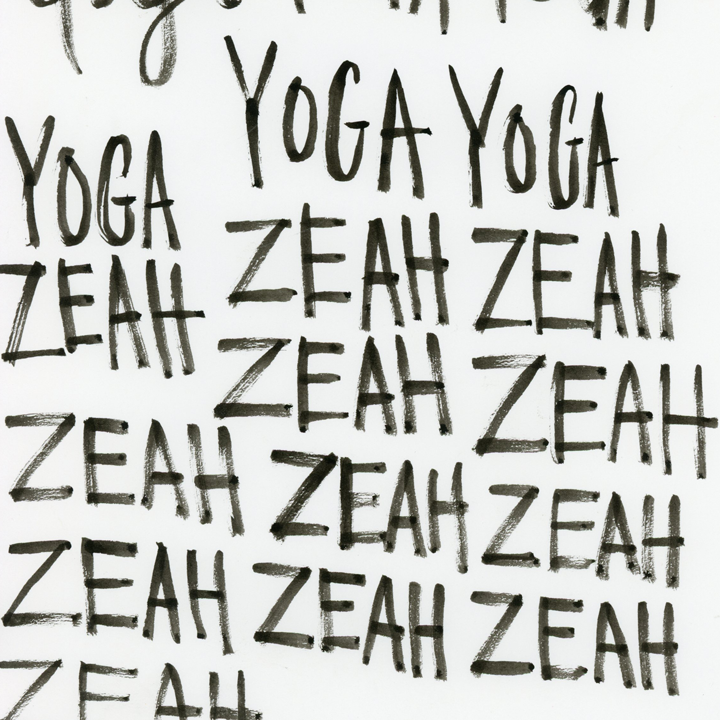 YOGA YOGA YOGA
ZEAH ZEAH ZEAH
ZEAH ZEAH ZEAH
ZEAH ZEAH ZEAH
ZEAH ZEAH ZEAH